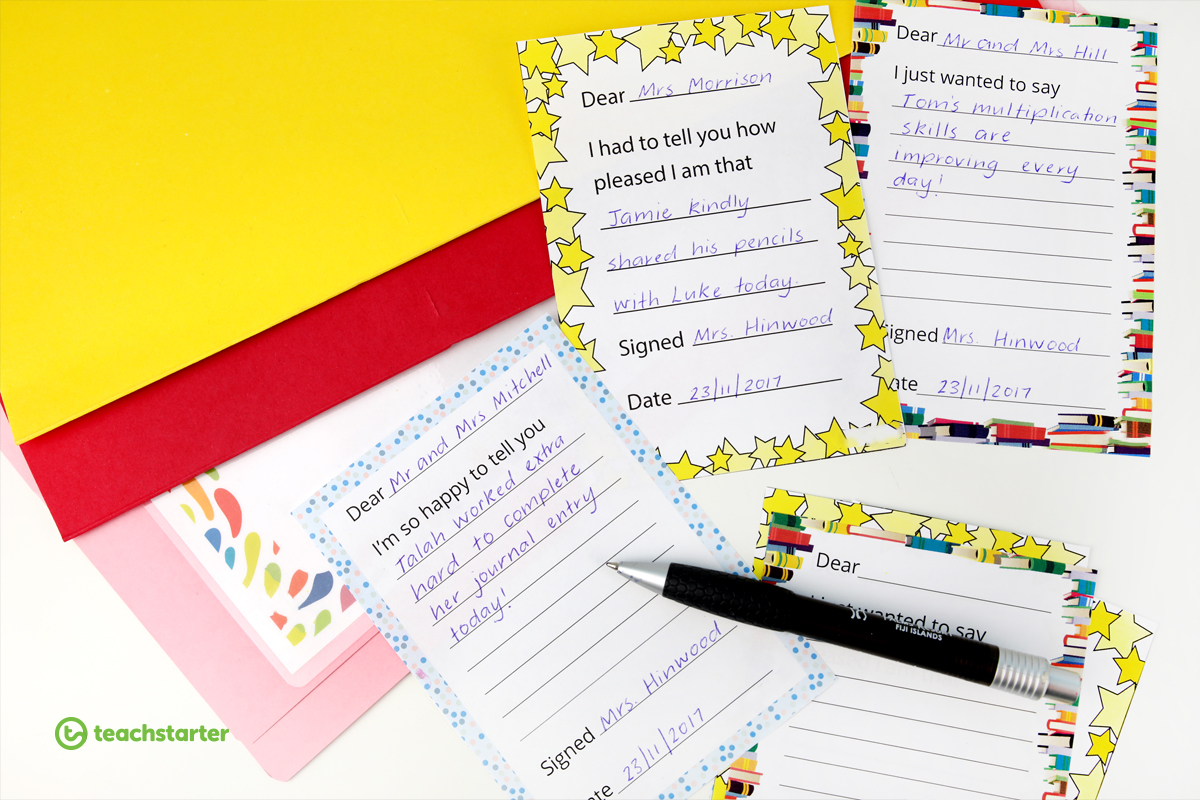 Dear Mrs Morrison
I had to tell you how
pleased I am that
Jamie kindly
shared his pencils
with Luke today.
Signed Mrs. Hinwood
Date 23/11/2017
Dear Mr and Mrs Hill
I just wanted to say
Tom's multiplication
skills are
improving every
day!
igned Mrs. Hinwood
ate 23/11/2017
Dear Mr and Mrs Mitchell
I'm so happy to tell you
Talah worked extra
hard to complete
her journal entry
today!
Signed Mrs. Hinwood
ate 23/11/2017
Dear
I just wanted to say
FIJI ISLANDS
teachstarter